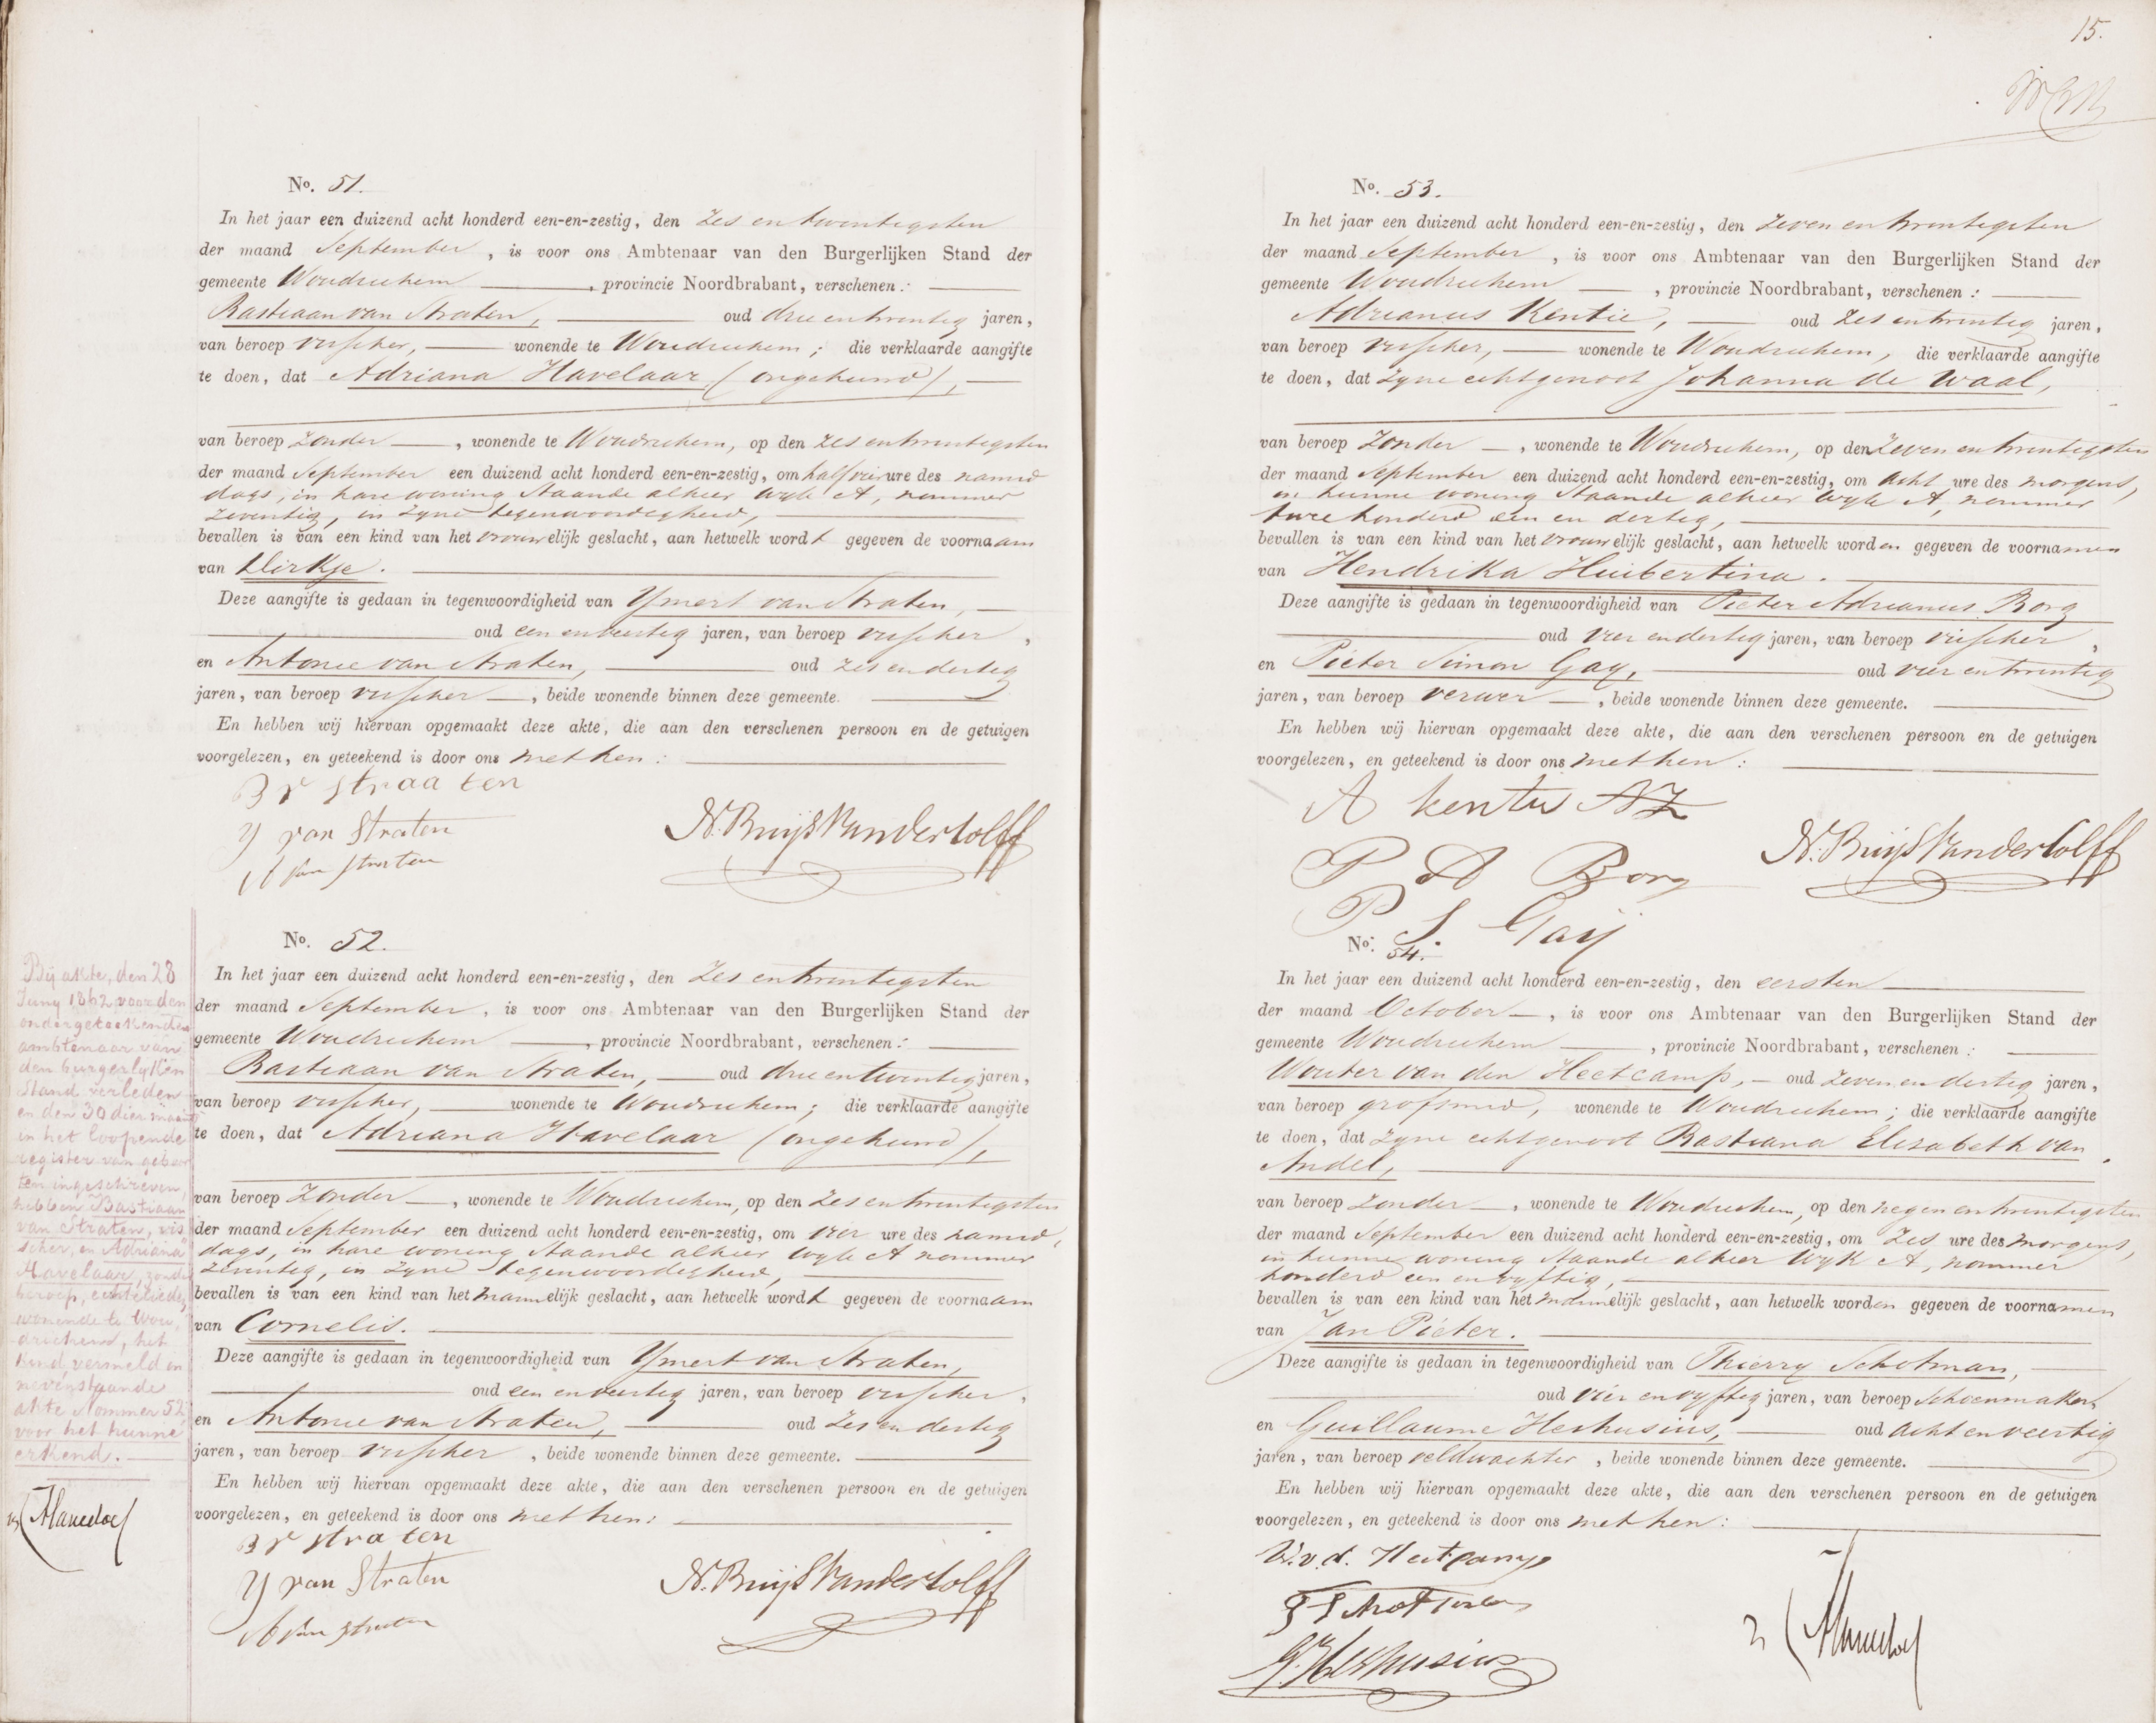 No. 51.
In het jaar een duizend acht honderd een-en-zestig, den zes en twentigsten
der maand September, is voor ons Ambtenaar van den Burgerlijken Stand der
gemeente Woudrichem, provincie Noordbrabant, verschenen:
Bastiaan van Straten, oud drie en twentig jaren,
van beroep visscher, wonende te Woudrichem; die verklaarde aangifte
te doen, dat Adriana Havelaar (ongehuwd),
van beroep zonder, wonende te Woudrichem, op den zes en twentigsten
der maand September een duizend acht honderd een-en-zestig, om half vier ure des namid
dags, in hare woning staande alhier wyk A, nommer
zeventig, in zyne tegenwoordigheid,
bevallen is van een kind van het vrouwelijk geslacht, aan hetwelk wordt gegeven de voornaam
van Dirkje.
Deze aangifte is gedaan in tegenwoordigheid van Ymert van Straten,
oud een en veertig jaren, van beroep visscher,
en Antonie van Straten, oud zes en dertig
jaren, van beroep visscher, beide wonende binnen deze gemeente.
En hebben wij hiervan opgemaakt deze akte, die aan den verschenen persoon en de getuigen
voorgelezen, en geteekend is door ons met hen:
B v straaten
Y van Straten
A van Straten
N. Buijs Vandertolff
No. 52.
In het jaar een duizend acht honderd een-en-zestig, den zes en twentigsten
der maand September, is voor ons Ambtenaar van den Burgerlijken Stand der
gemeente Woudrichem, provincie Noordbrabant, verschenen:
Bastiaan van Straten, oud drie en twentig jaren,
van beroep visscher, wonende te Woudrichem; die verklaarde aangifte
te doen, dat Adriana Havelaar (ongehuwd),
van beroep zonder, wonende te Woudrichem, op den zes en twentigsten
der maand September een duizend acht honderd een-en-zestig, om vier ure des namid
dags, in hare woning staande alhier wyk A nommer
zeventig, in zyne tegenwoordigheid,
bevallen is van een kind van het mannelijk geslacht, aan hetwelk wordt gegeven de voornaam
van Cornelis.
Deze aangifte is gedaan in tegenwoordigheid van Ymert van Straten,
oud een en veertig jaren, van beroep visscher,
en Antonie van Straten, oud zes en dertig
jaren, van beroep visscher, beide wonende binnen deze gemeente.
En hebben wij hiervan opgemaakt deze akte, die aan den verschenen persoon en de getuigen
voorgelezen, en geteekend is door ons met hen:
B v straten
Y van Straten
A van Straten
N. Buijs Vandertolff
Bij akte, den 28
Juny 1862 voor den
ondergeteekenden
ambtenaar van
den burgerlyken
Stand verleden
en den 30 dier maand
in het loopende
register van geboor
ten ingeschreven,
hebben Bastiaan
van Straten, vis
scher, en Adriana
Havelaar, zonder
beroep, echtelieden,
wonende te Wou,
drichem, het
kind vermeld in
nevenstaande
akte Nommer 52
voor het hunne
erkend.
15.
No. 53.
In het jaar een duizend acht honderd een-en-zestig, den zeven en twentigsten
der maand September, is voor ons Ambtenaar van den Burgerlijken Stand der
gemeente Woudrichem, provincie Noordbrabant, verschenen:
Adrianus Kentie, oud zes en twentig jaren,
van beroep visscher, wonende te Woudrichem, die verklaarde aangifte
te doen, dat zyne echtgenoot Johanna de Waal,
van beroep zonder, wonende te Woudrichem, op den zeven en twentigsten
der maand September een duizend acht honderd een-en-zestig, om acht ure des morgens,
in hunne woning staande alhier wyk A, nommer
twee honderd een en dertig,
bevallen is van een kind van het vrouwelijk geslacht, aan hetwelk worden gegeven de voornamen
van Hendrika Huibertina.
Deze aangifte is gedaan in tegenwoordigheid van Pieter Adrianus Borg
oud vier en dertig jaren, van beroep visscher,
en Pieter Simon Gay, oud vier en twintig
jaren, van beroep verwer, beide wonende binnen deze gemeente.
En hebben wij hiervan opgemaakt deze akte, die aan den verschenen persoon en de getuigen
voorgelezen, en geteekend is door ons met hen:
A kentie AZ
P A Borg
P S Gaij
N. Buijs Vandertolff
No. 54.
In het jaar een duizend acht honderd een-en-zestig, den eersten
der maand October, is voor ons Ambtenaar van den Burgerlijken Stand der
gemeente Woudrichem, provincie Noordbrabant, verschenen:
Wouter van den Heetcamp, oud zeven en dertig jaren,
van beroep grofsmid, wonende te Woudrichem; die verklaarde aangifte
te doen, dat zyne echtgenoot Bastiana Elizabeth van
Andel,
van beroep zonder, wonende te Woudrichem, op den negen en twentigsten
der maand September een duizend acht honderd een-en-zestig, om zes ure des morgens,
in hunne woning staande alhier wyk A, nommer
honderd een en vyftig,
bevallen is van een kind van het mannelijk geslacht, aan hetwelk worden gegeven de voornamen
van Jan Pieter.
Deze aangifte is gedaan in tegenwoordigheid van Thierry Schotman,
oud vier en vyftig jaren, van beroep Schoenmaker,
en Guillaume Heshusius, oud acht en veertig
jaren, van beroep veldwachter, beide wonende binnen deze gemeente.
En hebben wij hiervan opgemaakt deze akte, die aan den verschenen persoon en de getuigen
voorgelezen, en geteekend is door ons met hen:
W. v. d. Heetcamp
T Schotman
G. Heshusius